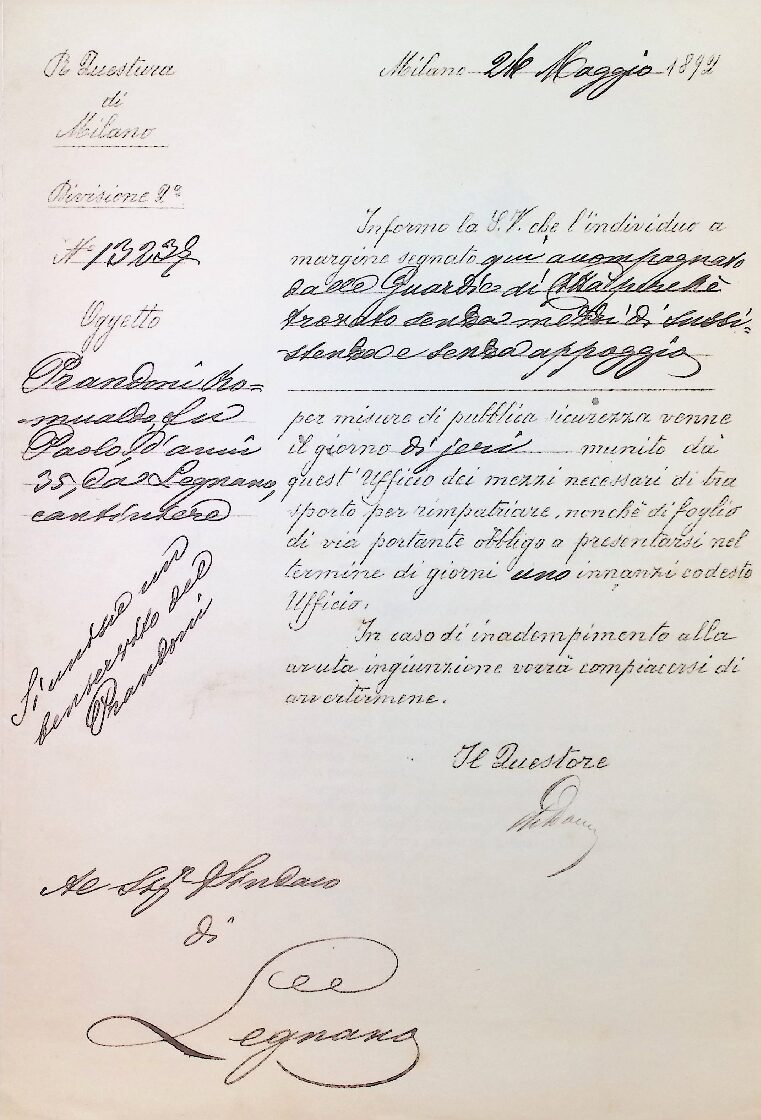 R. Questura
di
Milano
Divisione 2ª
N° 13237
Oggetto
Prandoni Ro=
mualdo, fu
Paolo, d'anni
35, da Legnano,
cantiniere
Si unisce un
benservito del
Prandoni
Milano 24 Maggio 1892
Informo la S.V. che l'individuo a
margine segnato qui accompagnato
dalle Guardie di Città perchè
trovato senza mezzi di sussi=
stenza e senza appoggio
per misure di pubblica sicurezza venne
il giorno di jeri munito da
quest'Ufficio dei mezzi necessari di tra
sporto per rimpatriare, nonchè di foglio
di via portante obbligo a presentarsi nel
termine di giorni uno innanzi codesto
Ufficio.
In caso di inadempimento alla
avuta ingiunzione vorrà compiacersi di
avvertirmene.
Il Questore
Al Sigr Sindaco
di
Legnano